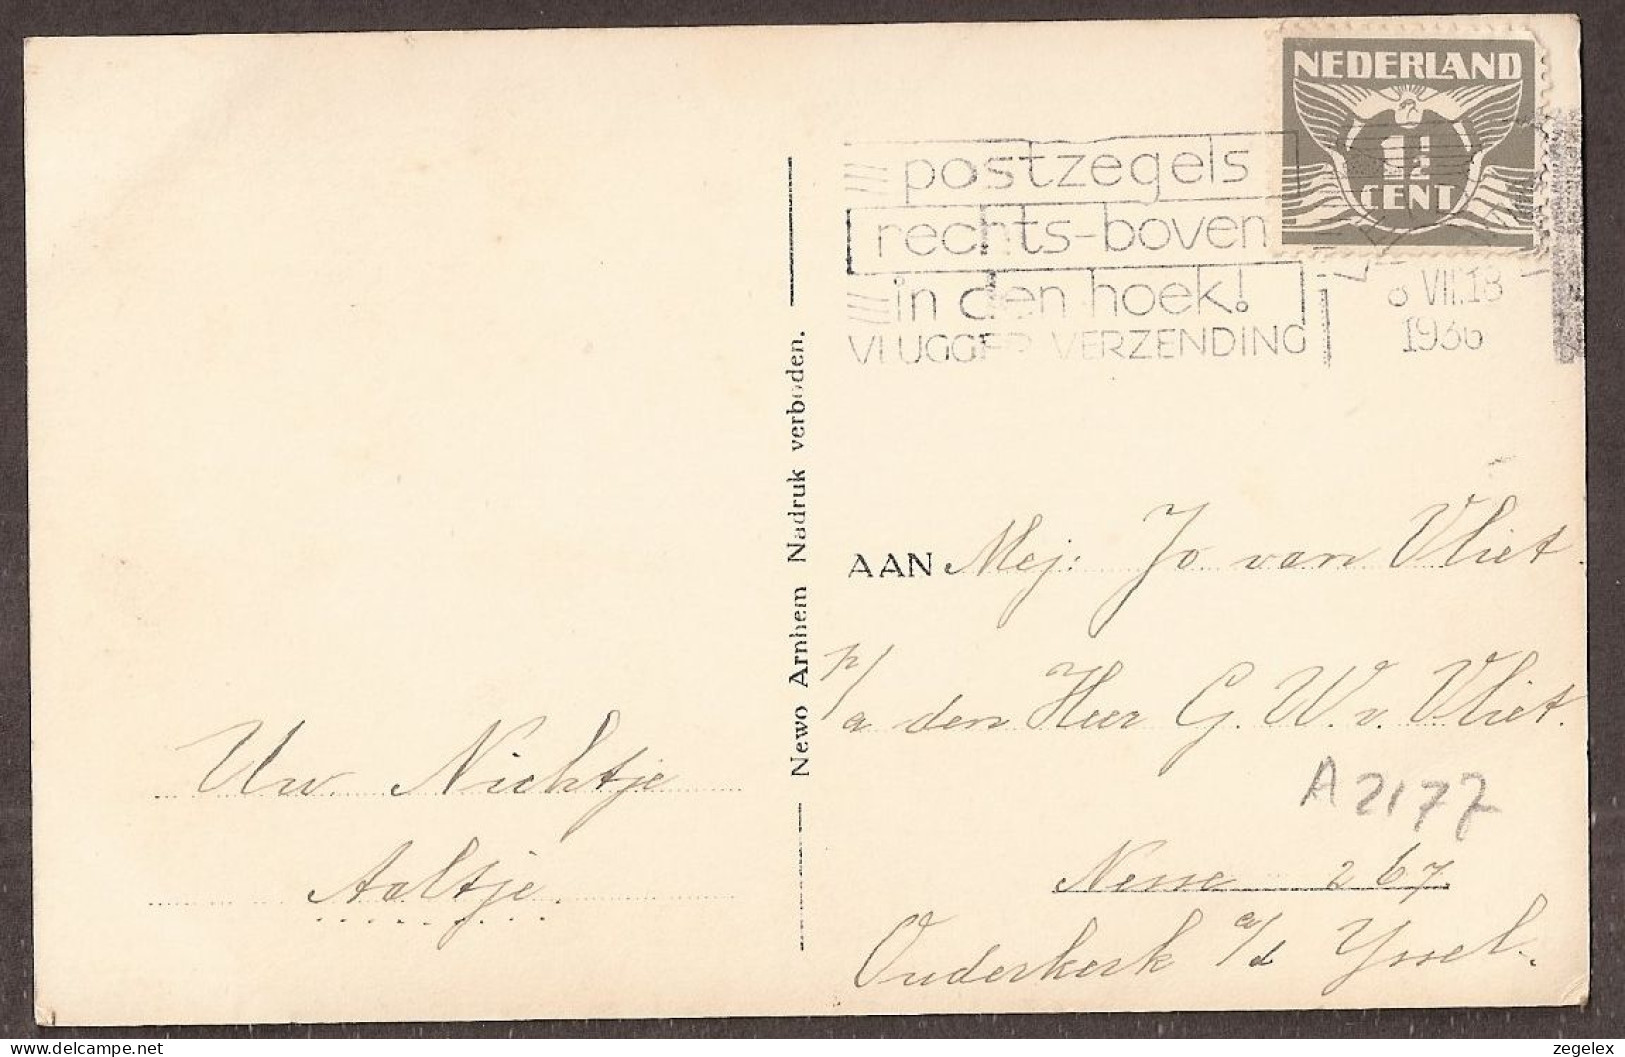 NEDERLAND
1½
CENT
postzegels
rechts-boven
in den hoek!
VLUGGER VERZENDING
8 VII.18
1936
Newo Arnhem Nadruk verboden.
AAN Mej: Jo van Vliet
p/a den Heer G. W. v. Vliet.
A2177
Nesse 267
Ouderkerk a/d Yssel.
Uw Nichtje
Aaltje.
© for delcampe.net
zegelex